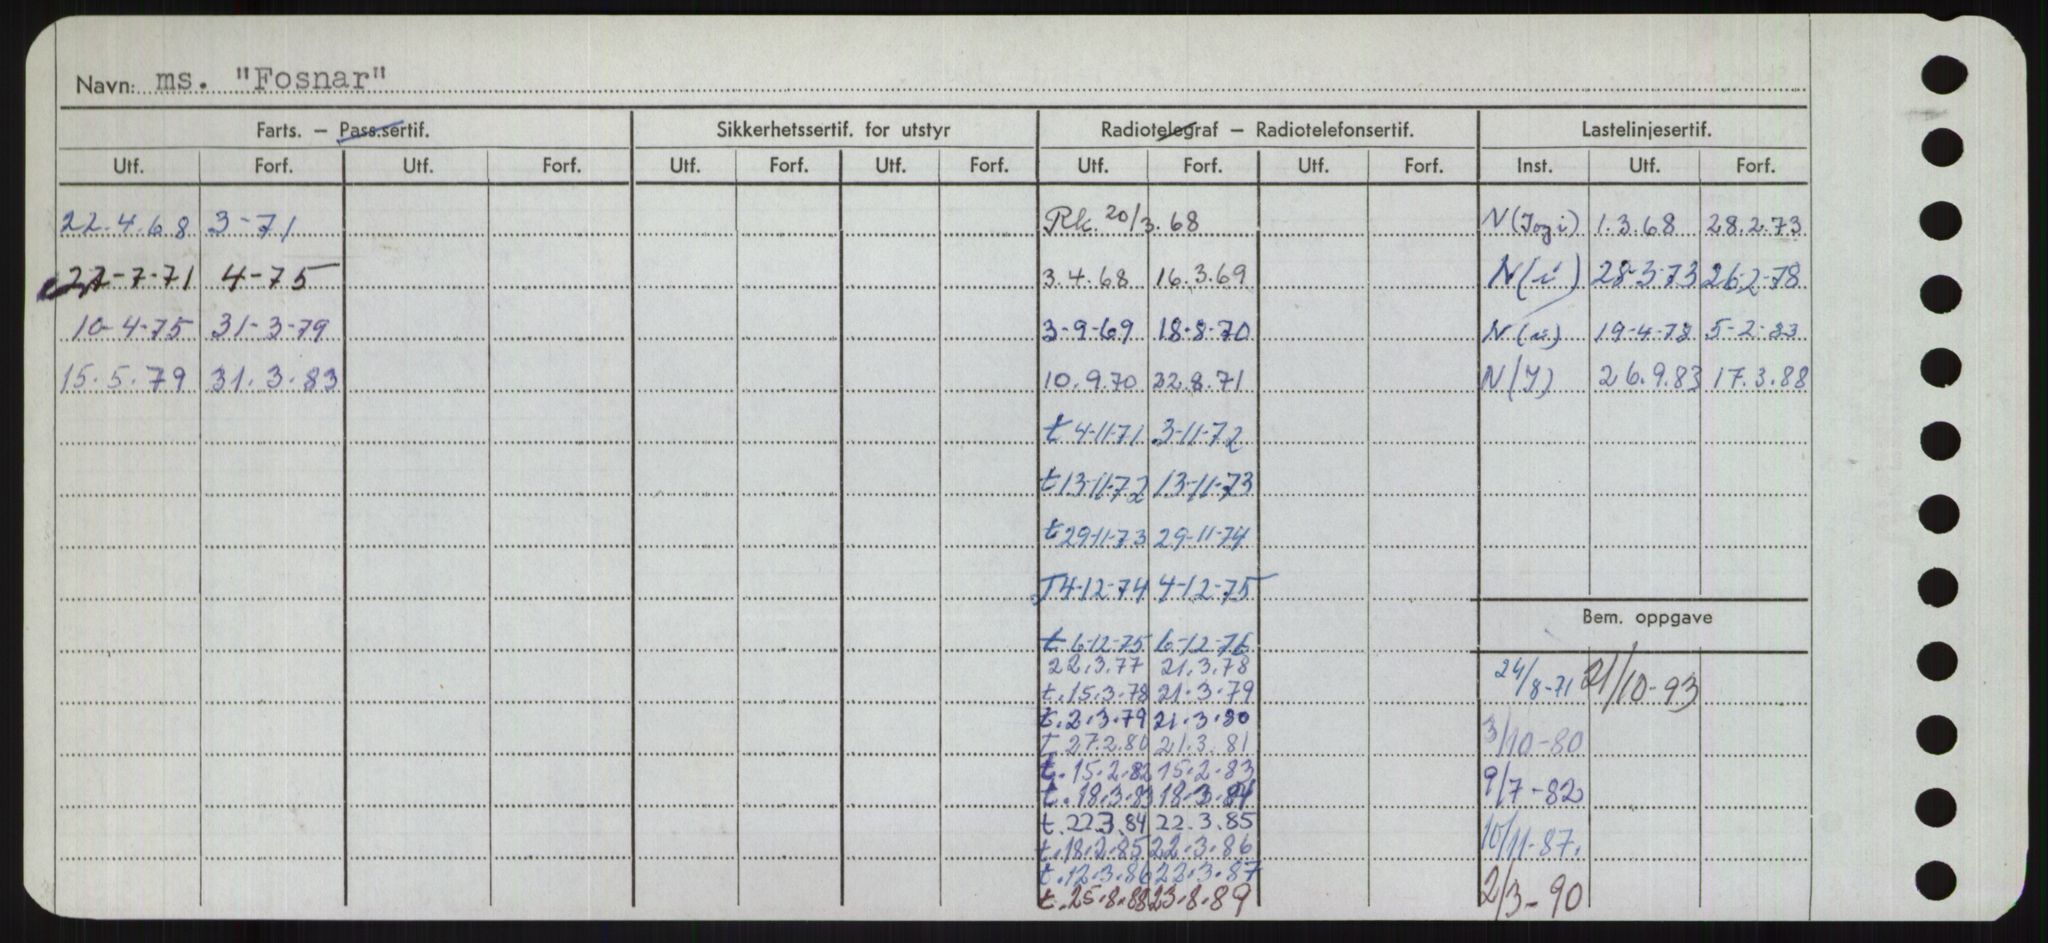 Navn: ms. "Fosnar"
Farts. – Pass.sertif. Sikkerhetssertif. for utstyr Radiotelegraf – Radiotelefonsertif. Lastelinjesertif.
Utf. Forf. Utf. Forf. Utf. Forf. Utf. Forf. Utf. Forf. Utf. Forf. Inst. Utf. Forf.
22.4.68 3-71 Rk. 20/3.68 N( 1.3.68 28.2.73
22-7-71 4-75 3.4.68 16.3.69 N(i) 28-3-73 26-2-78
10-4-75 31-3-79 3-9-69 18-8-70 N 19-4-78 5-2-83
15.5.79 31.3.83 10.9.70 22.8.71 N(Y) 26.9.83 17.3.88
t 4-11-71 3-11-72
t 13-11-72 13-11-73
t 29-11-73 29-11-74
T 4-12-74 4-12-75
Bem. oppgave
t 6-12-75 6-12-76
22.3.77 21.3.78 24/8-71 21/10-93
t. 15.3.78 21.3.79
t. 2.3.79 21.3.80 3/10-80
T 27.2.80 21.3.81
t. 15.2.82 15.2.83 9/7-82
t. 18.3.83 18.3.84
t. 22.3.84 22.3.85 10/11-87.
t. 18.2.85 22.3.86
t. 12.3.86 22.3.87 2/3-90
t. 25.8.88 23.8.89